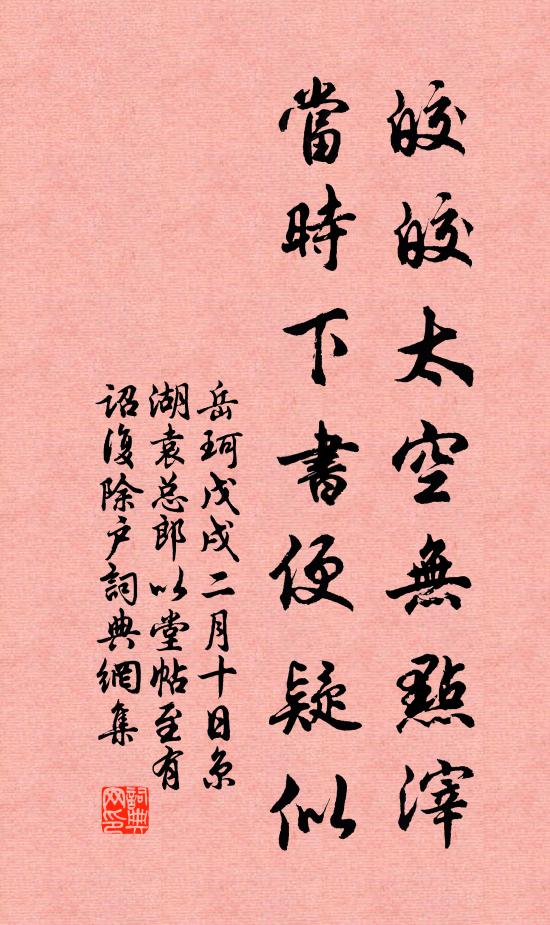 皎皎太空無點滓
當時下書便疑似
岳珂戊戌二月十日京
湖袁总郎以堂帖至有
詔復除户詞典網集
詞典网印